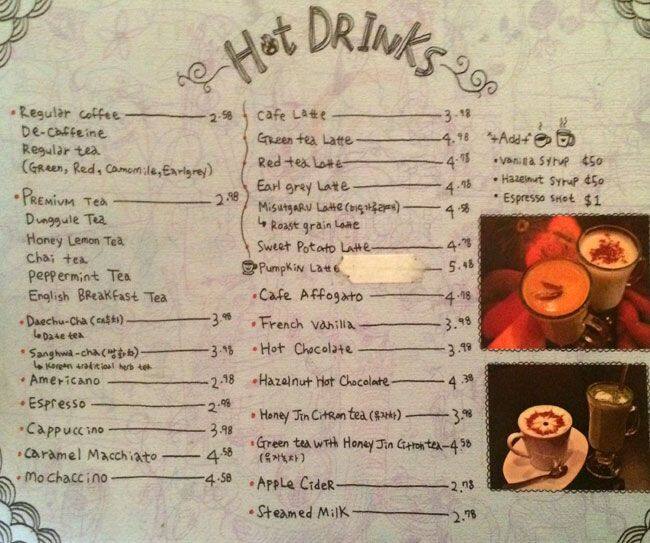 Hot DRINKS
Regular Coffee 2.58
De-Caffeine
Regular tea
(Green, Red, Camomile, Earlgrey)
Premium Tea 2.98
Dunggule Tea
Honey Lemon Tea
Chai tea
Peppermint Tea
English Breakfast Tea
Daechu-Cha (대추차) 3.98
↳ Date tea
Sanghwa-cha (쌍화차) 3.98
↳ Korean traditical herb tea
Americano 2.98
Espresso 2.98
Cappuccino 3.98
Caramel Macchiato 4.58
Mochaccino 4.58
Cafe Latte 3.98
Green tea Latte 4.98
Red tea Latte 4.78
Earl grey Latte 4.78
Misutgaru Latte (미숫가루라떼) 4.58
↳ Roast grain Latte
Sweet Potato Latte 4.78
Pumpkin Latte 5.48
Cafe Affogato 4.78
French Vanilla 3.98
Hot Chocolate 3.98
Hazelnut Hot Chocolate 4.38
Honey Jin Citron tea (유자차) 3.98
Green tea with Honey Jin Citron tea 4.58
(유자녹차)
Apple Cider 2.78
Steamed Milk 2.78
*+Add+*
Vanilla Syrup ¢50
Hazelnut Syrup ¢50
Espresso Shot $1